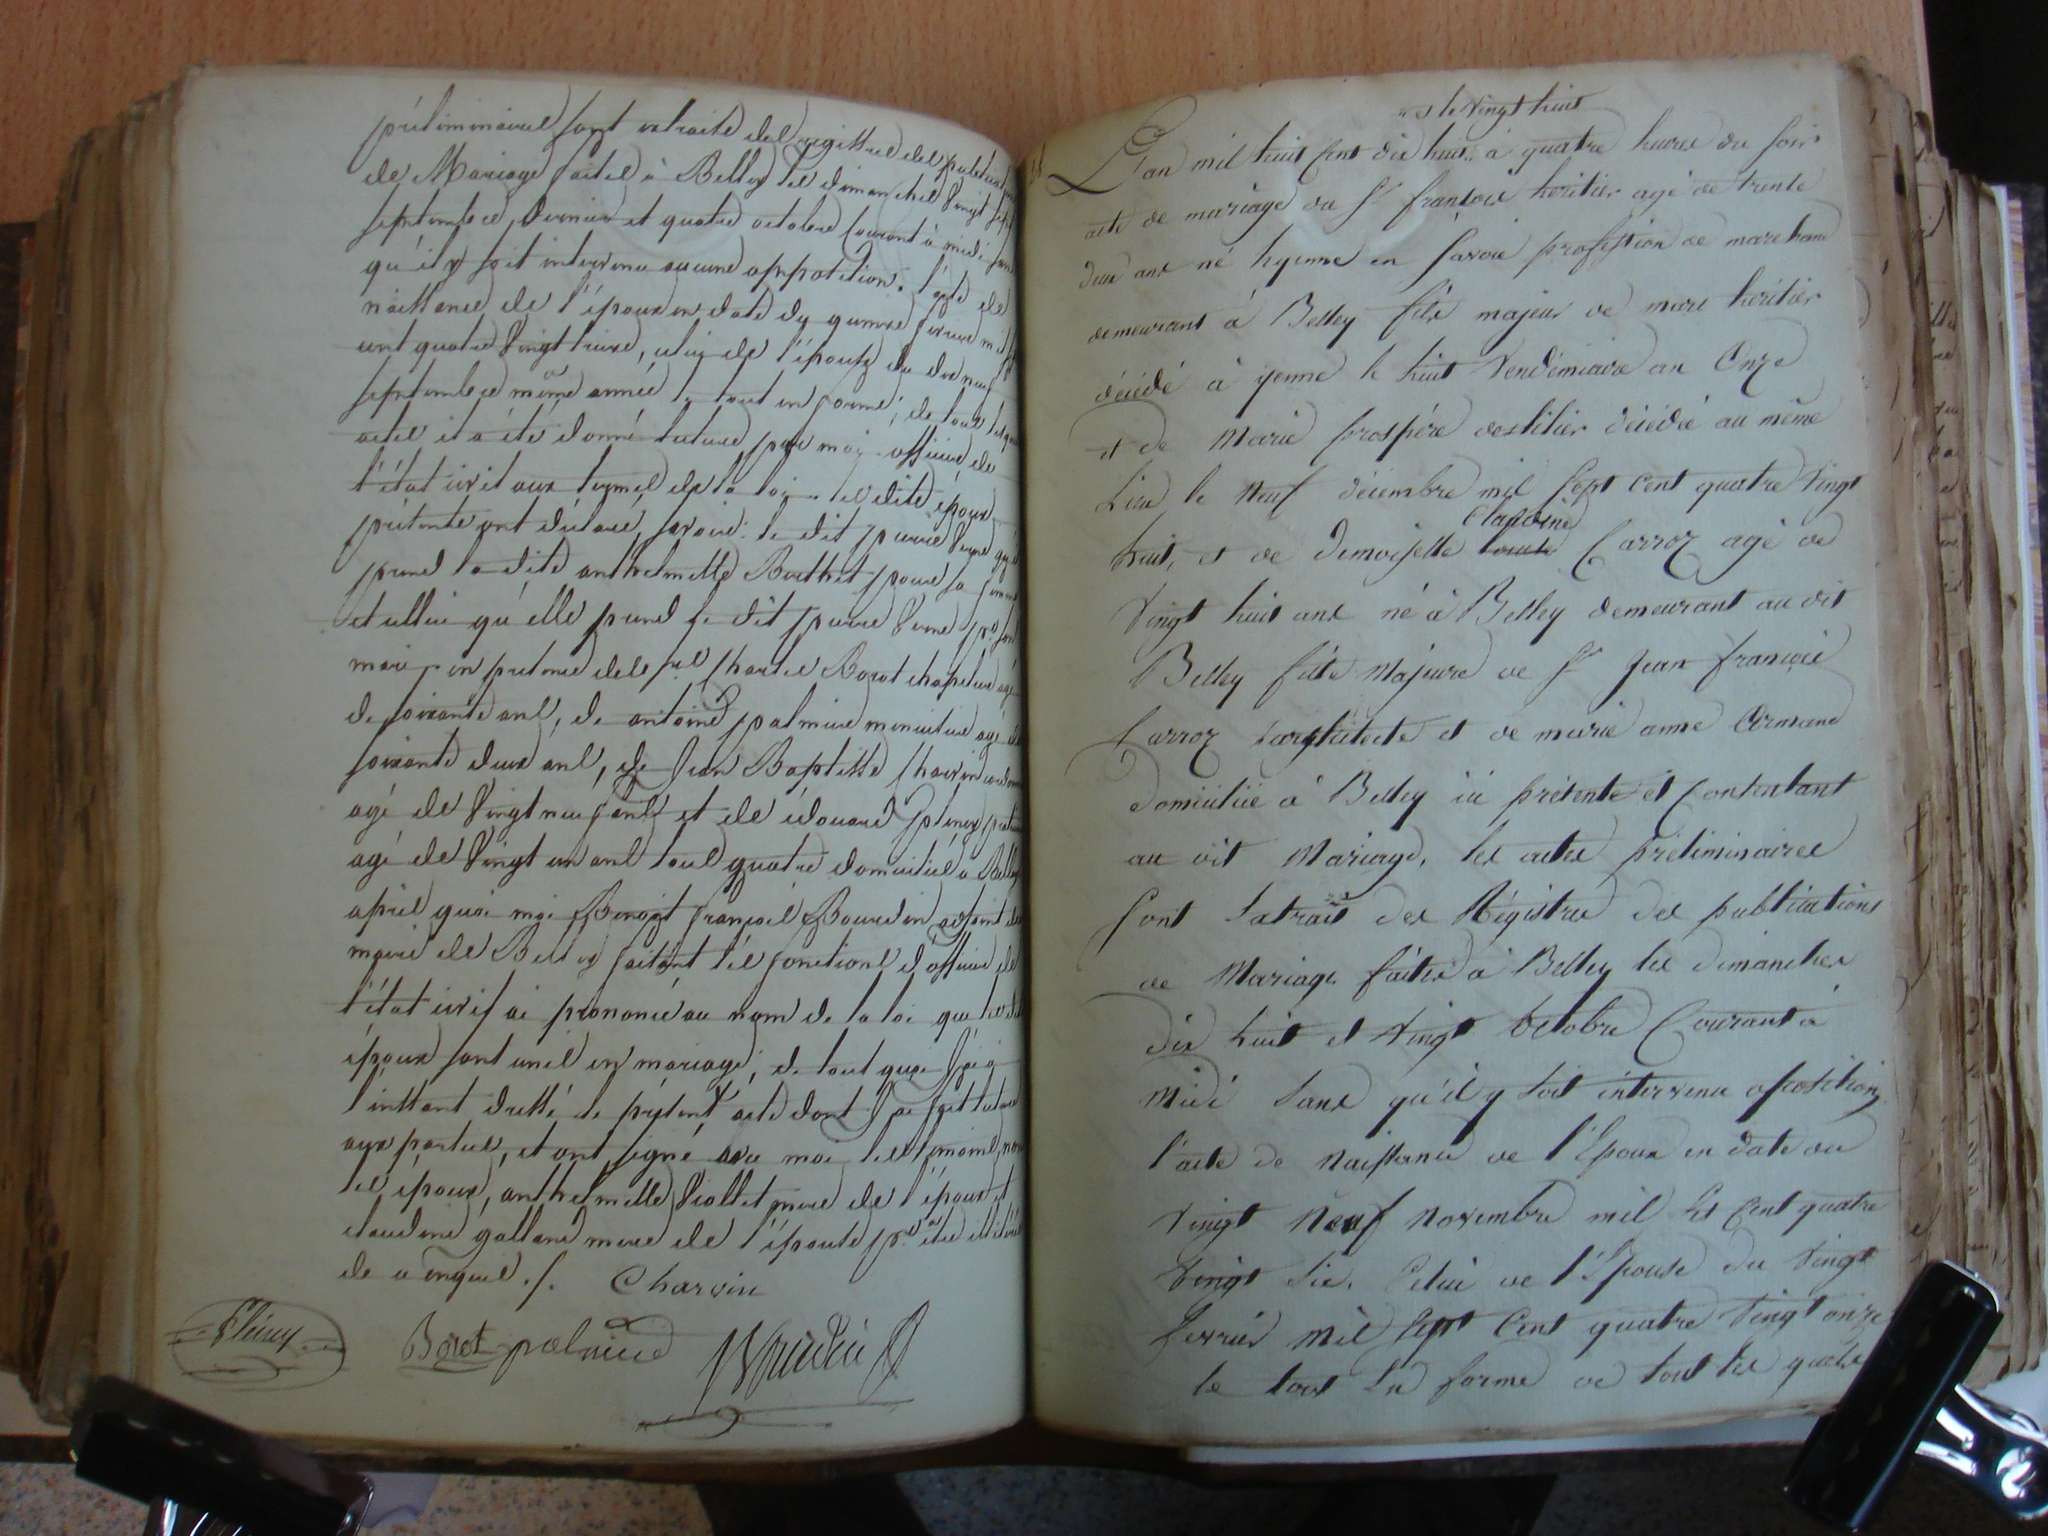 préliminaires sont extraits des registres des publications
de Mariage faites à Belley les dimanches vingt sept
septembre dernier et quatre octobre courant à midi sans
qu'il y soit intervenu aucune opposition. l'acte de
naissance de l'époux en date du quinze février mil
cent quatre vingt treize, celui de l'épouse du dix neuf
septembre même année le tout en forme; de tous lesquels
actes il a été donné lecture par moi officier de
l'état civil aux termes de la loi. les dits époux
présents ont déclaré, savoir: le dit pierre qu'il
prend la dite anthelmette Berthet pour sa femme
et celle ci qu'elle prend le dit pierre pr son
mari. en présence des srs Charles Borot chapelier agé
de soixante ans, de antoine palmier menuisier agé de
soixante deux ans, de Jean Baptiste Charvin
agé de vingt neuf ans et de édouard
agé de vingt un ans tous quatre domiciliés à Belley
après quoi moi Benoit françois Bourdin adjoint du
maire de Belley faisant les fonctions d'officier de
l'état civil ai prononcé au nom de la loi que les dits
époux sont unis en mariage, de tout quoi j'ai à
l'instant dressé le présent acte dont j'ai fait lecture
aux parties, et ont signé avec moi les témoins, non
les époux, anthelmette Viollet mere de l'époux et
claudine galland mere de l'épouse pr être illitérés
de ce enquis ./. Charvin
Fleury Borot palmier Bourdin
es le vingt huit
L'an mil huit cent dix huit à quatre heures du soir
acte de mariage du Sr françois héritier agé de trente
deux ans né hyenne en Savoie profession de marchand
demeurant à Belley fils majeur de marc héritier
décédé à yenne le huit Vendémiaire an Onze
et de Marie prospère déséditier décédée au même
Lieu le Neuf décembre mil Sept Cent quatre vingt
Claudine
huit, et de demoiselle Carroz agé de
Vingt huit ans né à Belley demeurant au dit
Belley fille Majeure de Sr Jean françois
Carroz L'architecte et de marie anne Armand
domiciliés à Belley ici présents et Consentant
au dit Mariage. les actes préliminaires
sont Extraits des Régistres des publications
de Mariage faites à Belley les dimanches
dix huit et vingt Octobre Courant à
Midi Sans qu'il y soit intervenu oposition,
l'acte de Naissance de l'Epoux en date du
vingt Neuf Novembre mil Set Cent quatre
vingt Six. Celui de l'Epouse du Vingt
fevrier Mil Sept Cent quatre Vingt onze
le tout En forme de tout les quels